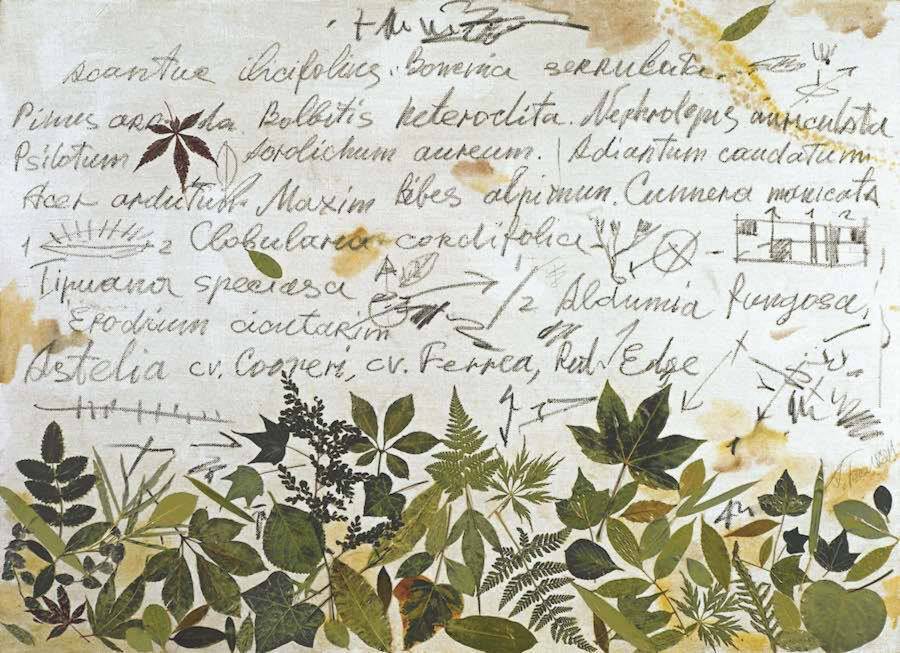 Acantus ilicifolius. Bowenia serrulata.
Pinus Bolbitis heteroclita. Nephrolepis auriculata
Psilotum aureum. Adiantum caudatum
Acer Maxim Ribes alpinum. Cunnera manicata
1 2 Clobularia cordifolia 1 2
Tipuana speciasa 2 Aldumia Fungosa,
Erodium cicutarim
Astelia cv. Cooreri, cv. Ferrea, Red. Edge